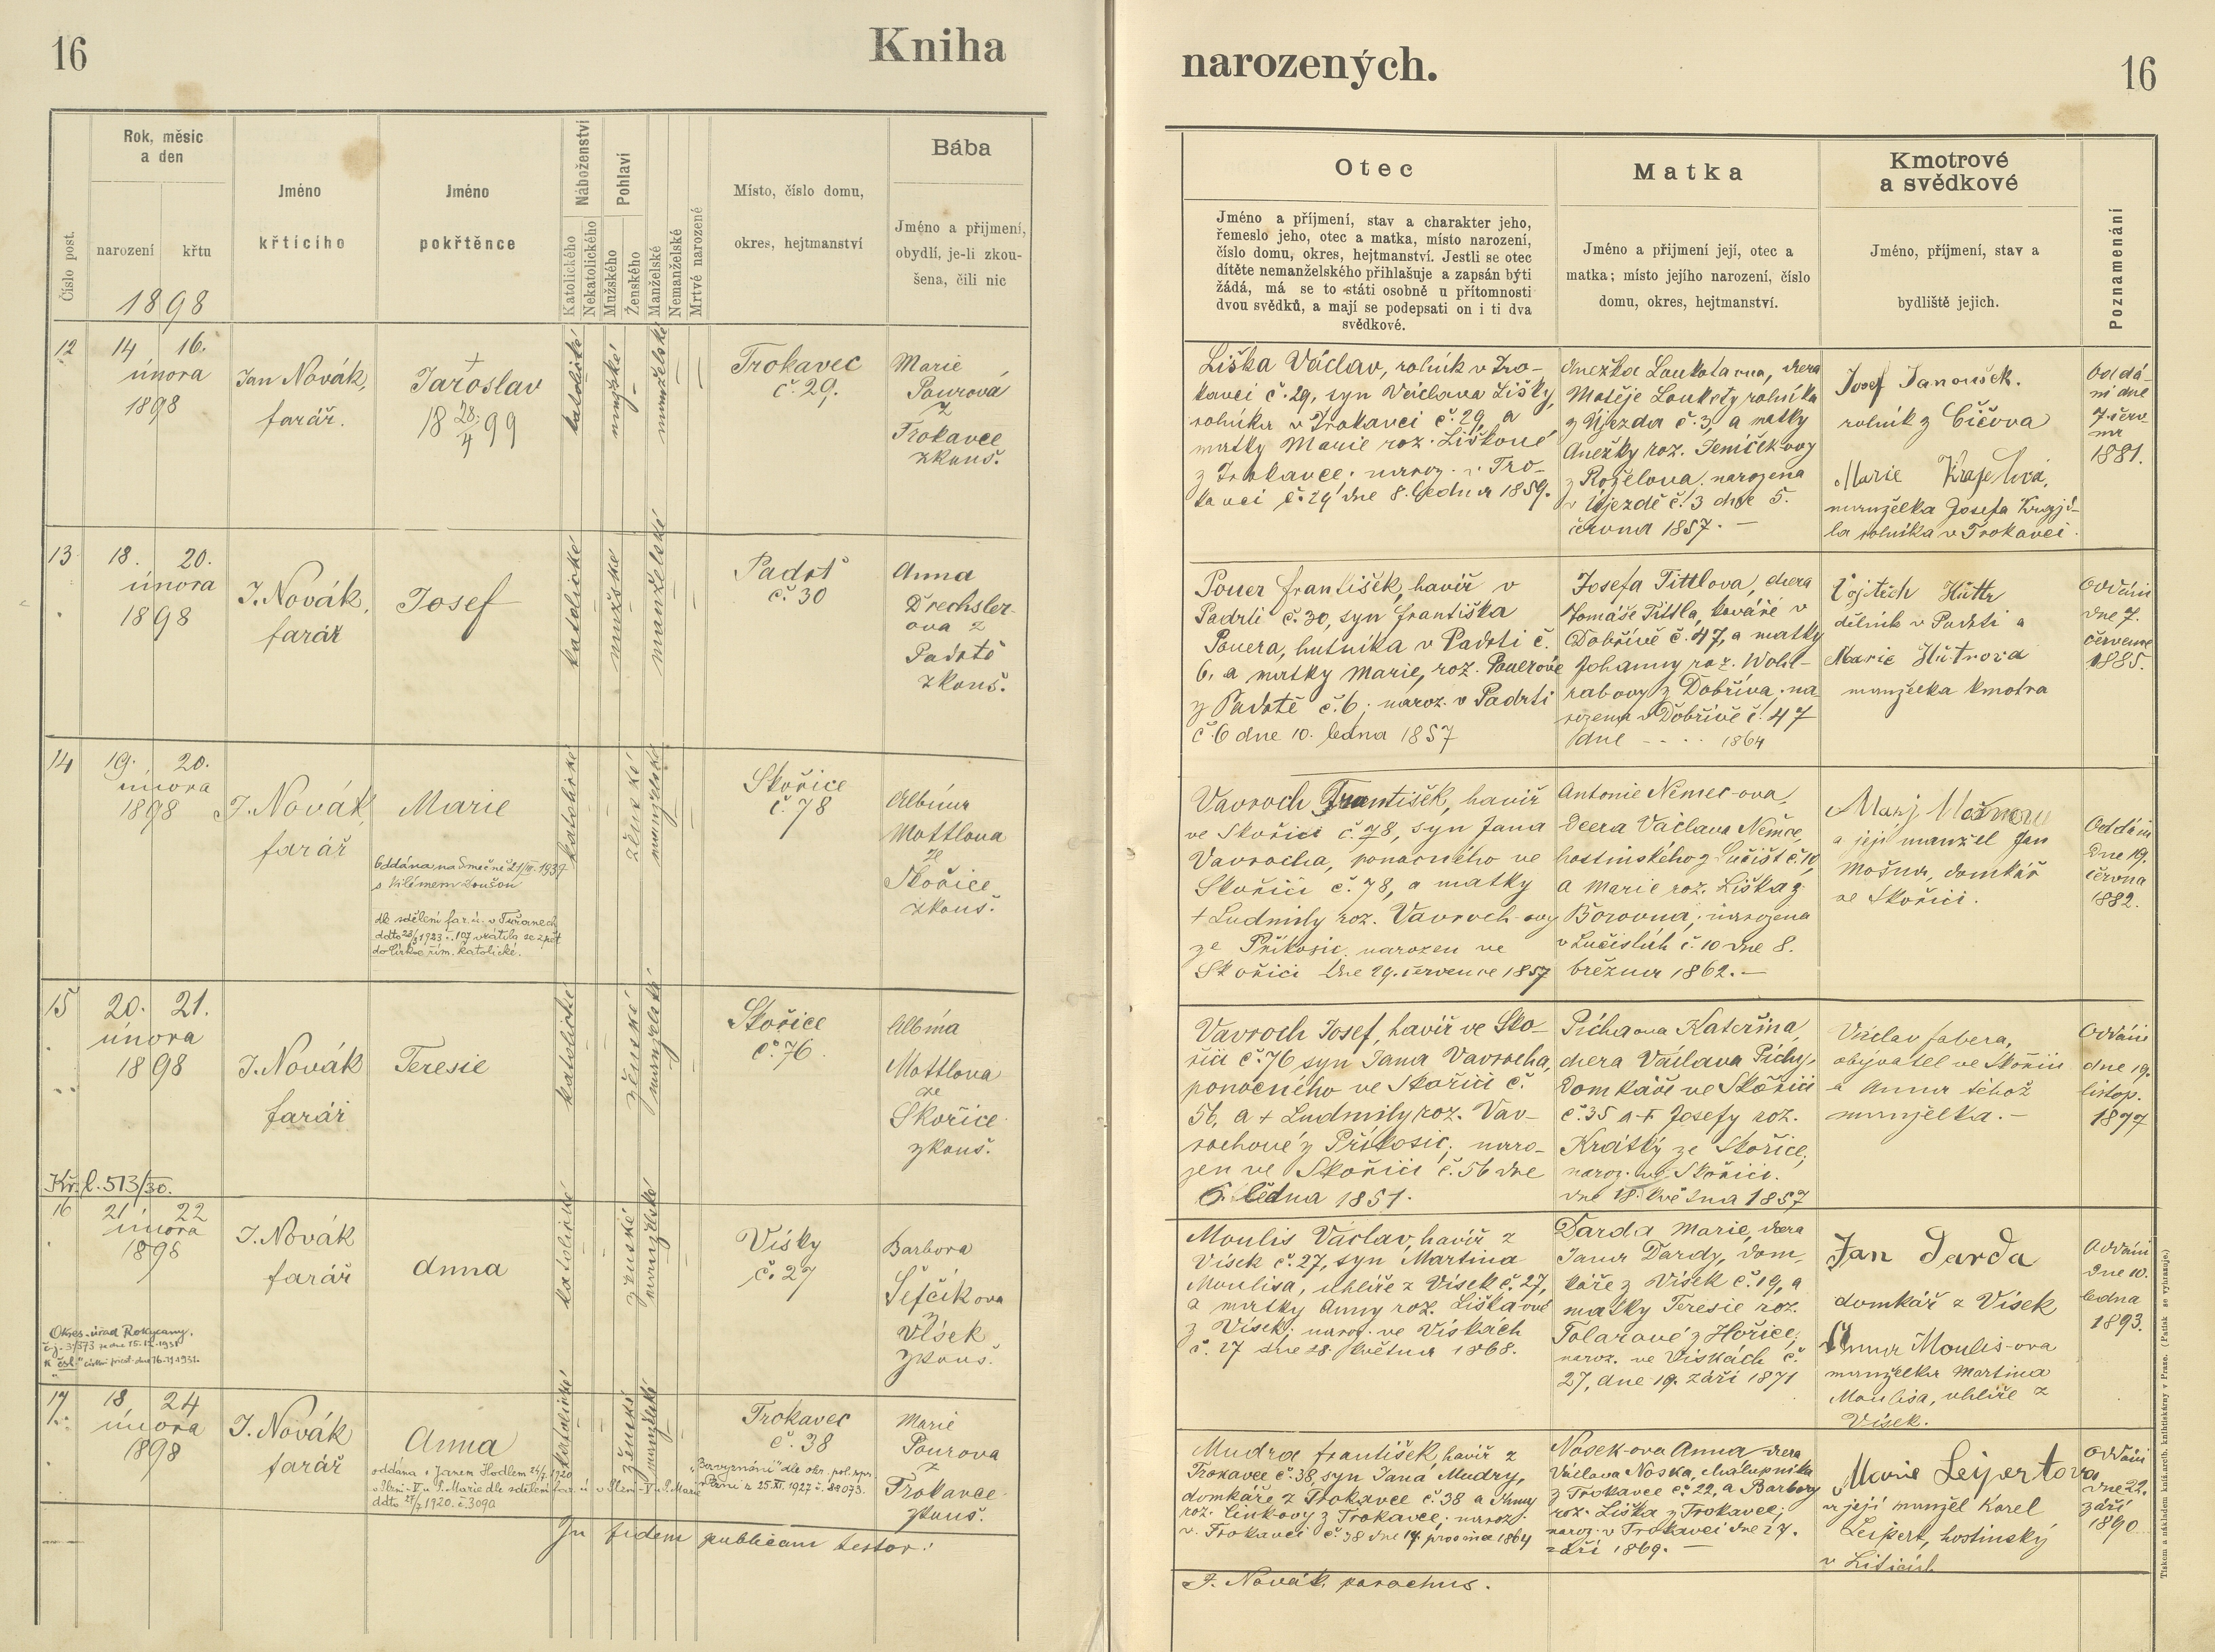 16
Kniha
Číslo post.
Rok, měsíc
a den
narození
křtu
1898
Jméno
křtícího
Jméno
pokřtěnce
Náboženství
Katolického
Nekatolického
Pohlaví
Mužského
Ženského
Manželské
Nemanželské
Mrtvé narozené
Místo, číslo domu,
okres, hejtmanství
Bába
Jméno a přijmení,
obydlí, je-li zkou-
šena, čili nic
12
14 16.
února
1898
Jan Novák,
farář.
+
Jaroslav
18 28/4 99
katolické
mužské
manželské
Trokavec
č. 29.
Marie
Pourová
z
Trokavce
zkouš.
13
18. 20.
února
1898
J. Novák,
farář
Josef
katolické
mužské
manželské
Padrť
č. 30
Anna
Drechsler-
ova z
Padrtě
zkouš.
14
19. 20.
února
1898
J. Novák,
farář
Marie
Oddána na Smečně 21/ 1939
s Vilémem Doušou
dle sdělení far. ú. v Tuřanech
ddto 1923 č. 107 vrátila se zpět
do církve řím. katolické.
katolické
ženské
manželské
Skořice
č. 78
Albína
Mottlova
ze
Skořice
zkouš.
15
20. 21.
února
1898
J. Novák
farář
Teresie
katolické
ženské
manželské
Skořice
č. 76.
Albína
Mottlova
ze
Skořice
zkouš.
Kř. l. 513/30.
16
21 22
února
1898
J. Novák
farář
Anna
katolické
ženské
manželské
Vísky
č. 27
Barbora
Šefčíkova
z
Vísek
zkouš.
Okres. úřad Rokycany.
17
18 24
února
1898
J. Novák
farář
Anna
oddána s Janem Hodlem 24/7 1920
v Plzni-V u P. Marie dle sdělení far. ú. v Plzni-V u P. Marie
ddto 27/7 1920. č. 3090
katolické
ženské
manželské
Trokavec
č. 38
"Bezvyznání" dle okr. pol. spr.
v Plzni z 25.XI. 1927 č. 82073.
Marie
Pourova
z
Trokavce
zkouš.
In fidem publicam testor:
narozených.
16
Otec
Jméno a příjmení, stav a charakter jeho,
řemeslo jeho, otec a matka, místo narození,
číslo domu, okres, hejtmanství. Jestli se otec
dítěte nemanželského přihlašuje a zapsán býti
žádá, má se to státi osobně u přítomnosti
dvou svědků, a mají se podepsati on i ti dva
svědkové.
Matka
Jméno a přijmení její, otec a
matka; místo jejího narození, číslo
domu, okres, hejtmanství.
Kmotrové
a svědkové
Jméno, příjmení, stav a
bydliště jejich.
Poznamenání
Liška Václav, rolník v Tro-
kavci č. 29, syn Václava Lišky,
rolníka v Trokavci č. 29, a
matky Marie roz. Liškové
z Trokavce; naroz. v Tro-
kavci č. 29 dne 8. ledna 1859.
Anežka Loukotova, dcera
Matěje Loukoty rolníka
z Újezda č. 3, a matky
Anežky roz. Jeníčkovy
z Rožélova; narozena
v Újezdě č. 3 dne 5.
června 1857. —
Josef Janoušek.
rolník z Číčova
Marie
manželka Josefa
rolníka v Trokavci.
Oddá-
ni dne
7. červ-
na
1881.
Pouer František, havíř v
Padrti č. 30, syn Františka
Pouera, hutníka v Padrti č.
6, a matky Marie, roz. Pouerové
z Padrtě č. 6; naroz. v Padrti
č. 6 dne 10. ledna 1857
Josefa Tittlova, dcera
Tomáše Tittla, kováře v
Dobřívě č. 47, a matky
Johanny roz. Wohl-
rabovy z Dobříva; na-
rozena v Dobřívě č. 47
dne - - - - 1864
Vojtěch Hüttr
dělník v Padrti a
Marie Hütrova
manželka kmotra
Oddáni
dne 7.
července
1885.
Vavroch František, havíř
ve Skořici č. 78, syn Jana
Vavrocha, ponocného ve
Skořici č. 78, a matky
+ Ludmily roz. Vavroch-ovy
ze Příkosic, narozen ve
Skořici dne 29. července 1857
Antonie Němec-ova,
dcera Václava Němce,
hostinského z Lučišť č. 10,
a Marie roz. Liška z
Borovna; narozena
v Lučištích č. 10 dne 8.
března 1862. —
a její manžel Jan
Mošna, domkář
ve Skořici.
Oddáni
dne 19.
června
1882.
Vavroch Josef, havíř ve Sko-
řici č. 76 syn Jana Vavrocha,
ponocného ve Skořici č.
56, a + Ludmily roz. Vav-
rochové z Příkosic; naro-
zen ve Skořici č. 56 dne
6. ledna 1851.
Píchaova Kateřina,
dcera Václava Píchy,
domkáře ve Skořici
č. 35 a + Josefy roz.
Krátký ze Skořice;
naroz. ve Skořici.
dne 18. května 1857
Václav Fabera,
obyvatel ve Skořici
a Anna téhož
manželka. —
Oddáni
dne 19.
listop.
1877
Moulis Václav, havíř z
Vísek č. 27, syn Martina
Moulisa, uhlíře z Vísek č. 27,
a matky Anny roz. Liška-ové
z Vísek; naroz. ve Vískách
č. 27 dne 28. května 1868.
Darda Marie, dcera
Jana Dardy, dom-
káře z Vísek č. 19, a
matky Teresie roz.
Tolarové z Hořice;
naroz. ve Vískách č.
27, dne 19. září 1871
Jan Darda
domkář z Vísek
Anna Moulis-ova
manželka Martina
Moulisa, uhlíře z
Vísek.
Oddáni
dne 10.
ledna
1893.
Mudra František, havíř z
Trokavce č. 38, syn Jana Mudry,
domkáře z Trokavce č. 38 a Anny
roz. Cinkovy z Trokavce; naroz.
v Trokavci č. 38 dne 14. prosince 1864
Nosek-ova Anna dcera
Václava Noska, chalupníka
z Trokavce č. 22, a Barbory
roz. Liška z Trokavce;
naroz. v Trokavci dne 27.
září 1869. —
Marie Leipertova
a její manžel Karel
Leipert, hostinský
v Liticích
Oddáni
dne 22.
září
1890
J. Novák parochus.
Tiskem a nákladem kníž. arcib. knihtiskárny v Praze. (Patisk se vyhrazuje.)